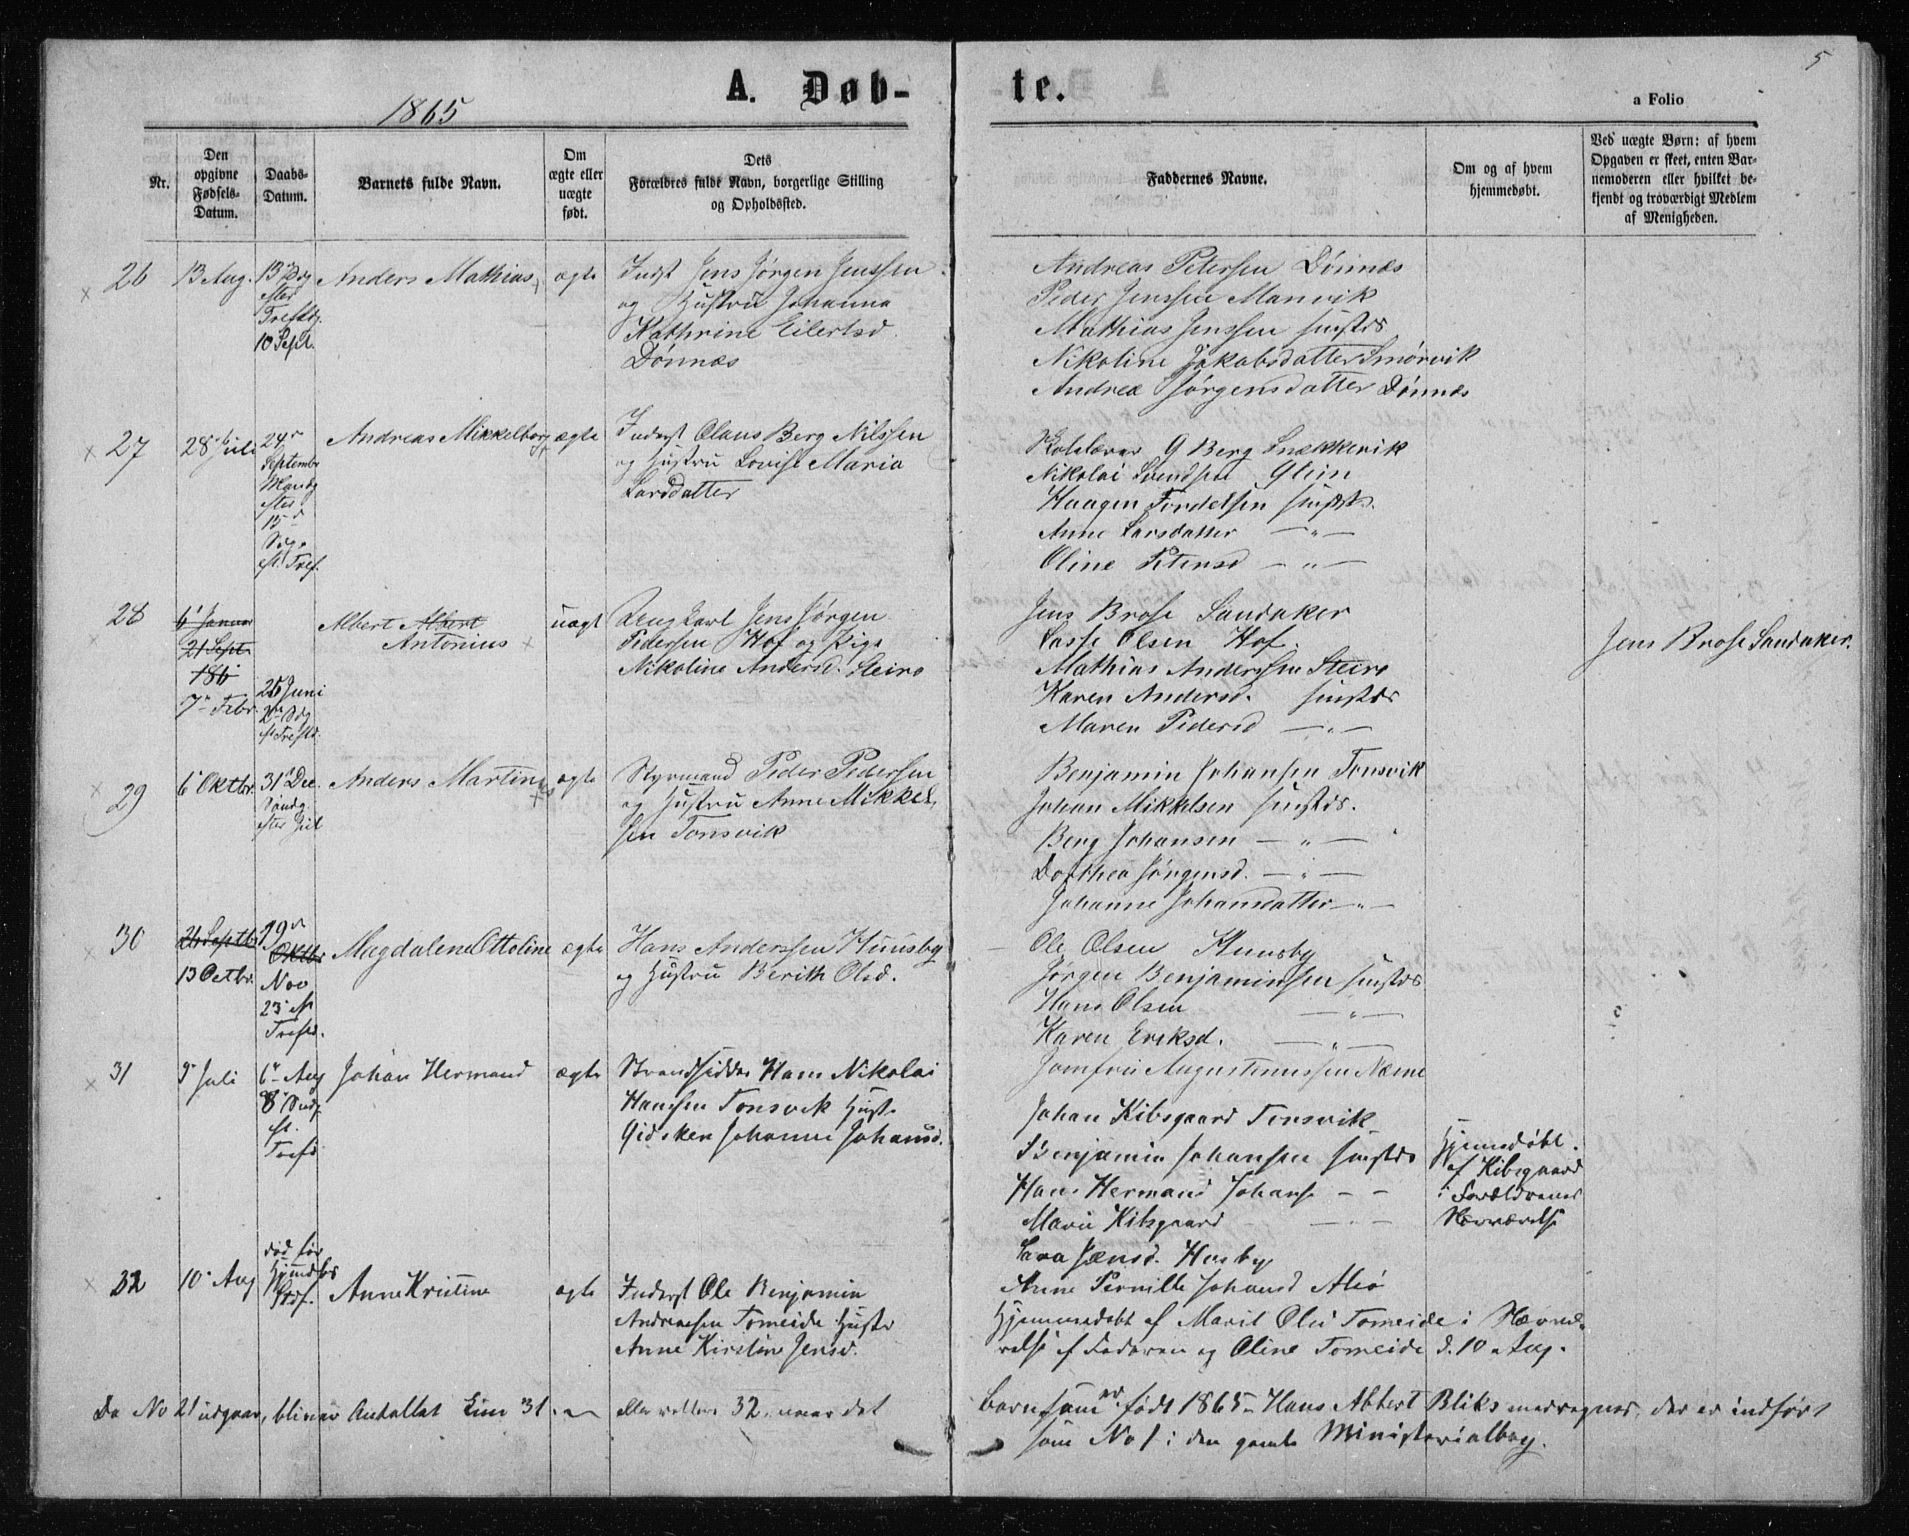 5
A. Døb-
te.
1865
a Folio
Nr.
Den
opgivne
Fødsels-
Datum.
Daabs-
Datum.
Barnets fulde Navn.
Om
ægte eller
uægte
født.
Dets
Forældres fulde Navn, borgerlige Stilling
og Opholdssted.
Faddernes Navne.
Om og af hvem
hjemmedøbt.
Ved uægte Børn: af hvem
Opgaven er skeet, enten Bar-
nemoderen eller hvilket be-
kjendt og troværdigt Medlem
af Menigheden.
26
13 Aug.
13de Sdg
efter
Trefdg.
10 Sept.
Anders Mathias
ægte
Inderst Jens Jørgen Jenssen
og Hustru Johanna
Kathrine Eilertsd.
Dønnæs
Andreas Petersen Dønnæs
Peder Jenssen Manvik
Mathias Jenssen sinstds
Nikoline Jakobsdatter Smørvik
Andrea Jørgensdatter Dønnæs
27
28 Juli
24r
Septembr
Mandg
efter
15d
Sdg.
ef. Tref.
Andreas Mikkelborg
ægte
Inderst Claus Berg Nilssen
og Hustru Lovise Maria
Larsdatter
Skolelærer G Berg Snækkevik
Nikolai Svendsen Glein
Haagen Tordelsen sinstds.
Anne Larsdatter — " —
Oline Petersd — " —
28
6' Januar
21 Sept.
186
7de Febr.
25 Juni
2den Sdg
ef Trefld.
Albert Albert
Antonius
uægt
Ungkarl Jens Jørgen
Pedersen Hof og Pige
Nikoline Andersd. Steiro
Jens Brose Sandaker
Lasse Olsen Hof
Mathias Anderssen Steiro
Karen Andersd. sinstds
Maren Pedersd — " —
Jens Brose Sandaker.
29
6' Oktbr.
31' Dec.
Søndg.
efter Jul
Anders Martin
ægte
Styrmand Peder Pedersen
og Hustru Anne Mikkel-
sen Tonsvik
Benjamin Johansen Tonsvik
Johan Mikkelsen sinstds.
Berg Johansen — " —
Dorthea Jørgensd. — " —
Johanne Johansdatter — " —
30
26 Septbr.
13 Octbr.
19r
Oktbr
Nov
23' ef
Trefld.
Magdalene Ottoline
ægte
Hans Anderssen Hunsby
og Hustru Berith Olsd.
Ole Olsen Hunsby
Jørgen Benjaminsen sinstds
Hans Olsen — " —
Karen Eriksd. — " —
Jomfru Augustinussen Næsne
31
9' Juli
6' Aug
8' Sndg.
ef.
Trefd
Johan Hermand
ægte
Strandsidder Hans Nikolai
Hanssen Tonsvik Hust.
Gidsken Johanne Johansd.
Johan Kibsgaard Tonsvik
Benjamin Johansen sinstds
Hans Hermand Johans — —
Marie Kibsgaard — " —
Sara Jensd. Husby
Hjemmedøbt
af Kibsgaard
i Forældrenes
Nærværelse
32
10' Aug
død før
Anne Kristine
ægte
Inderst Ole Benjamin
Andreasen Tomeide Hustr
Anne Kirstine Jensd.
Anne Pernille Johansd Alsø
Hjemmedøbt af Marit Olsd Tomeide i Nærvæ-
relse af Faderen og Oline Tomeide d. 10 Aug.
Da No 21 udgaar, bliver Antallet kun 31. — eller rettere 32, naar det
Barn som er født 1865 - Hans Abbert Bliks medregnes, der er indført
som No 1 i den gamle Ministerialbog.